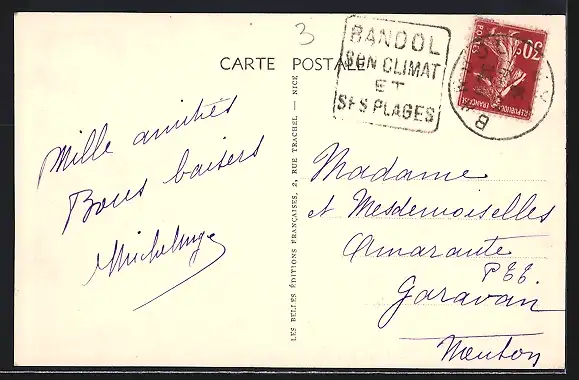 3
CARTE POSTALE
BANDOL
SON CLIMAT
ET
SES PLAGES
30c
POSTES
REPUBLIQUE FRANÇAISE
Mille amitiés
Bons baisers
LES BELLES ÉDITIONS FRANÇAISES, 2, RUE TRACHEL — NICE
Madame
et Mesdemoiselles
Amarante
Garavan
Menton